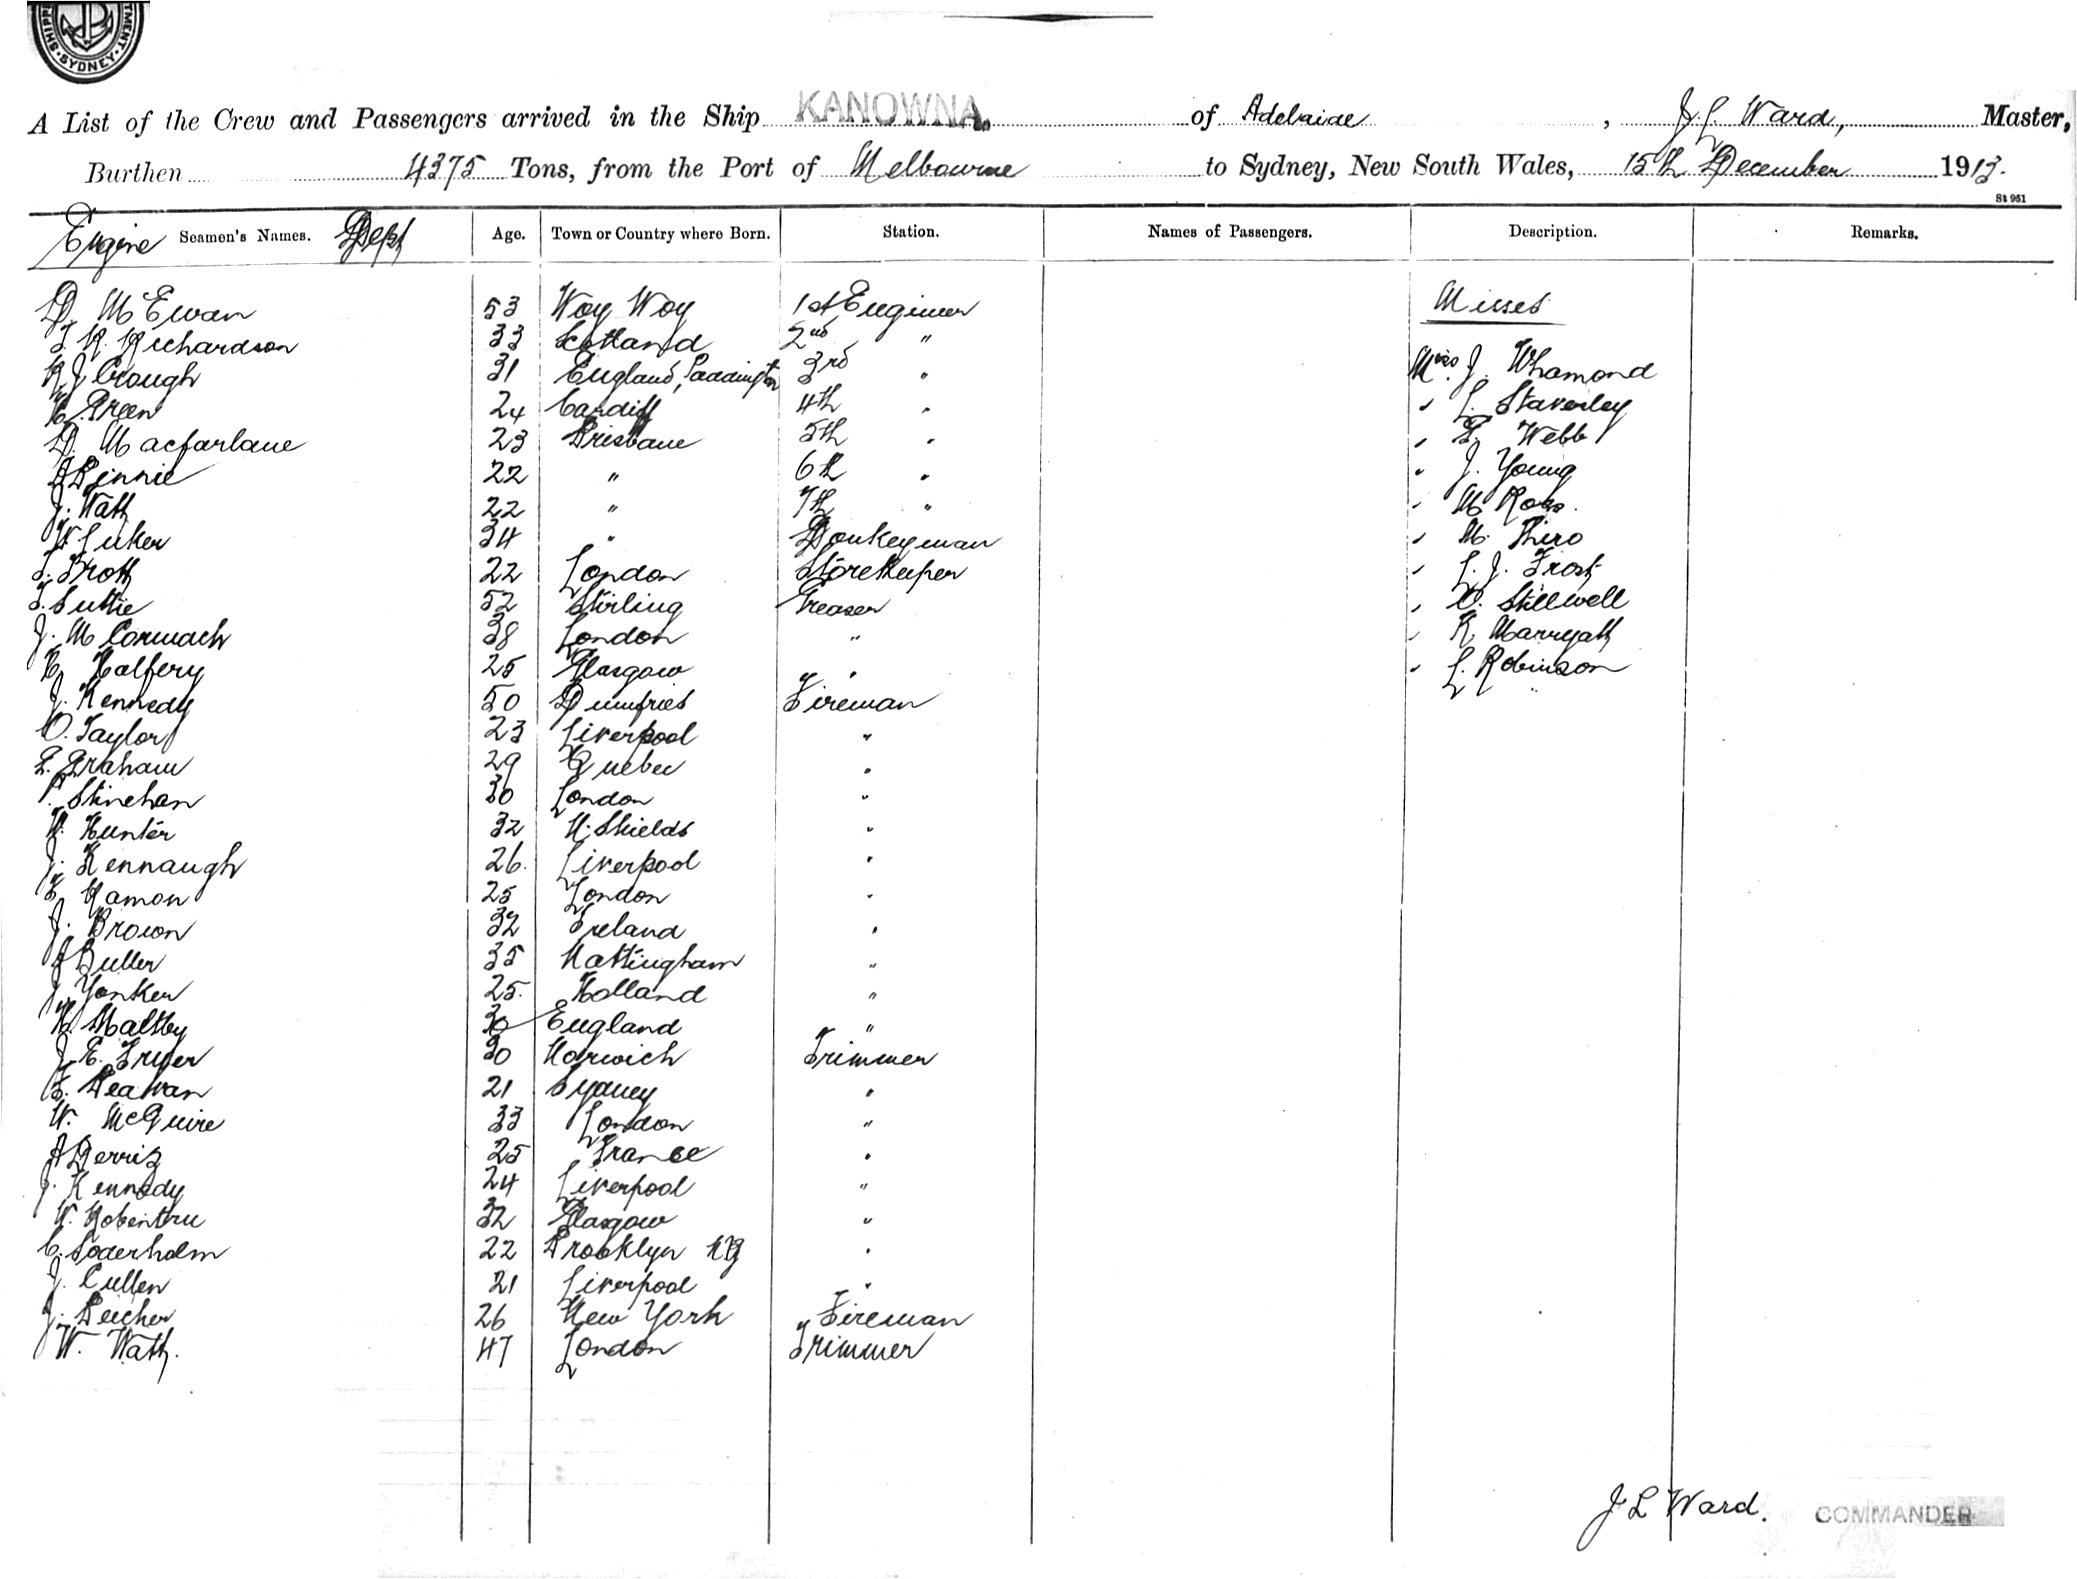 SHIPPI MENT. SYDNEY
A List of the Crew and Passengers arrived in the Ship KANOWNA. of Adelaide, J L Ward, Master,
Burthen 4375 Tons, from the Port of Melbourne to Sydney, New South Wales, 15th December 1913.
St 951
Engine Seamen's Names. Dept Age. Town or Country where Born. Station. Names of Passengers. Description. Remarks.
D. McEwan 53 Woy Woy 1st Engineer Misses
T. R. Richardson 33 Scotland 2nd "
R J Crough 31 England, Paddington 3rd " Miss J. Whamond
H. Green 24 Cardiff 4th " " L. Staverley
D. Macfarlane 23 Brisbane 5th " " E. Webb
A Binnie 22 " 6th " " J. Young
J. Watt 22 " 7th " " M Ross.
W Luker 34 " Donkeyman " M.
T. Brott 22 London Storekeeper " L. J. Frost
T. Suttie 52 Stirling Greaser " O. Stillwell
J. McCormack 38 London " " K Marryatt
H. Halfery 25 Glasgow " " L. Robinson
J. Kennedy 50 Dumfries Fireman
O. Taylor 23 Liverpool "
E. Graham 29 Quebec "
P. Stinehan 30 London "
W. Hunter 32 N. Shields "
J. Kennaugh 26. Liverpool "
Hamon 25 London "
J. Brown 32 Ireland "
A Buller 35 Nottingham "
J Yonker 25. Holland "
H. Maltby 30 England "
J. E. Fryer 30 Norwich Trimmer
21 Sydney "
W. McGuire 33 London "
A 25 France "
J. Kennedy 24 Liverpool "
W. 32 Glasgow "
C. Soderholm 22 Brooklyn NY "
J. Cullen 21 Liverpool "
J. 26 New York Fireman
W. Watt. 47 London Trimmer
J L Ward. COMMANDER